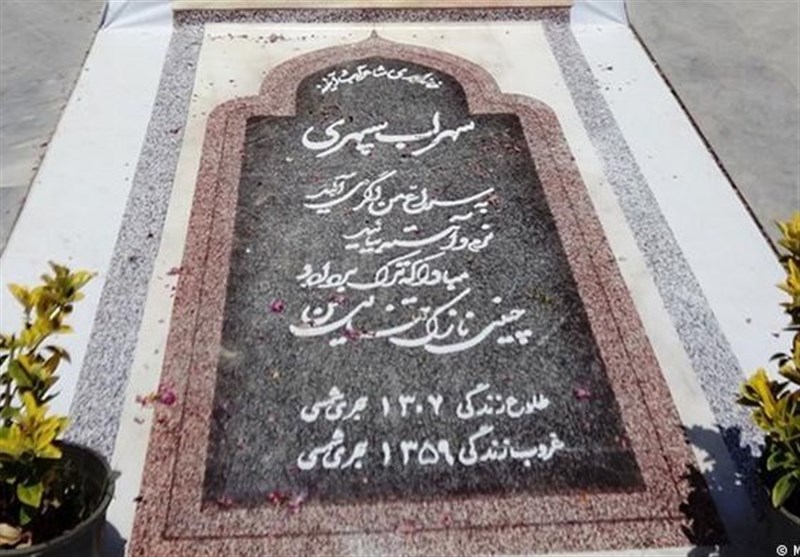 سهراب سپهری
به سراغ من اگر می آیید
نرم و آهسته بیایید
مبادا که ترک بردارد
چینی نازک تنهایی من
طلوع زندگی ۱۳۰۷ هجری شمسی
غروب زندگی ۱۳۵۹ هجری شمسی
© M